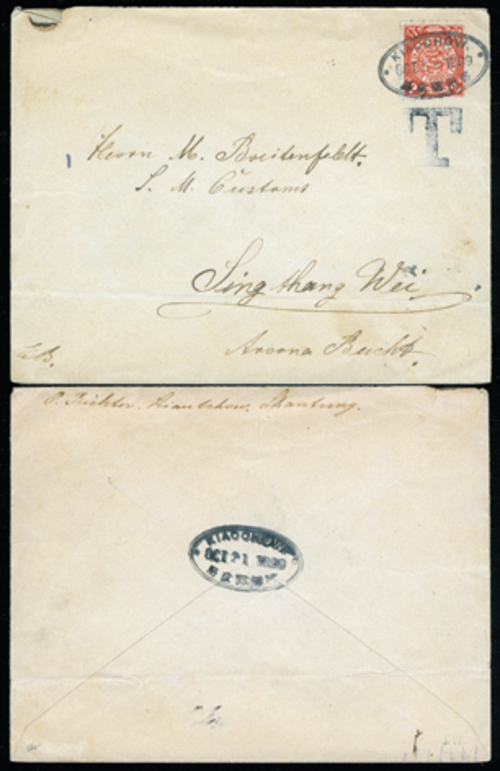 KIAOCHOW.
OCT 21 1899
T
Herrn M. Breitenfeldt.
I. M. Customs
Tsingthang Wei
Arcona Bucht.
P. Richter. Kiautschow, Shantung.
KIAOCHOW
OCT 21 1899